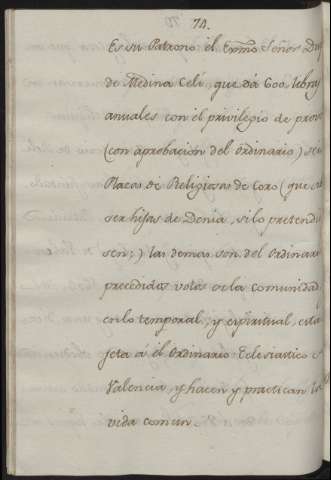 74.
Es su Patrono el Exmo Señor Duq
de Medina Celi, que dá 600. libras
anuales con el privilegio de prove
(con aprobacion del Ordinario) seis
Plazas de Religiosas de Coro (que
ser hijas de Denia, si lo pretendie
sen;) las demas son del Ordinario
precedidas votos de la comunidad,
en lo temporal, y espiritual, esta
jeta á el Ordinario Eclesiastico
Valencia, y hacen y practican la
vida comun.